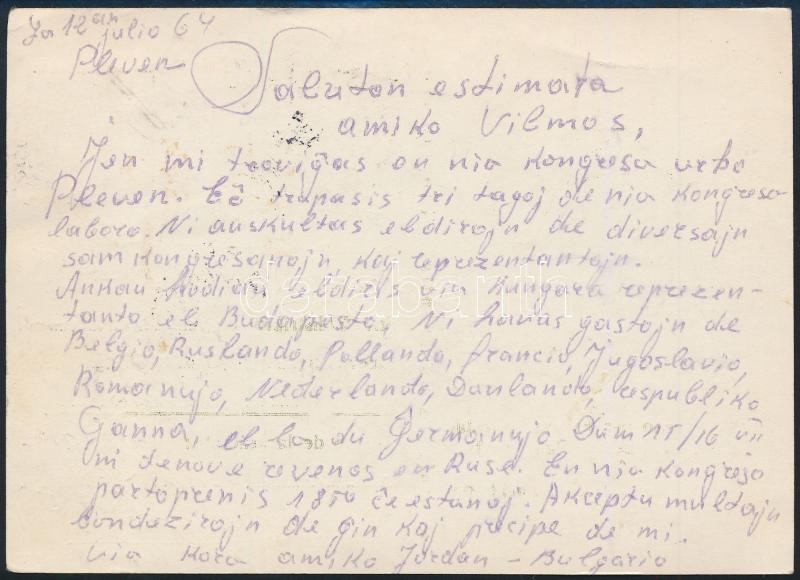 La 12an julio 64
Pleven
Saluton estimata
amiko Vilmos,
Jen mi troviĝas en nia kongresa urbo
Pleven. trapasis tri tagoj de nia kongresa
laboro. Ni auskultas eldirojn de diversajn
samkongresanojn kaj reprezentantojn.
Ankau hodiau eldiris via Hungara reprezen-
tanto el Budapesto. Ni havas gastojn de
Belgio, Ruslando, Pollando, Francio, Jugoslavio,
Romanujo, Nederlando, Danlando, respubliko
Ganna, el la du Germanujo. Dum 15/16 VII
ni denove revenos en Ruse. En nia kongreso
partoprenis 1850 ĉeestanoj. Akceptu multajn
bondezirojn de ĝin kaj precipe de mi.
Via kara amiko Jordan - Bulgario
darabanth